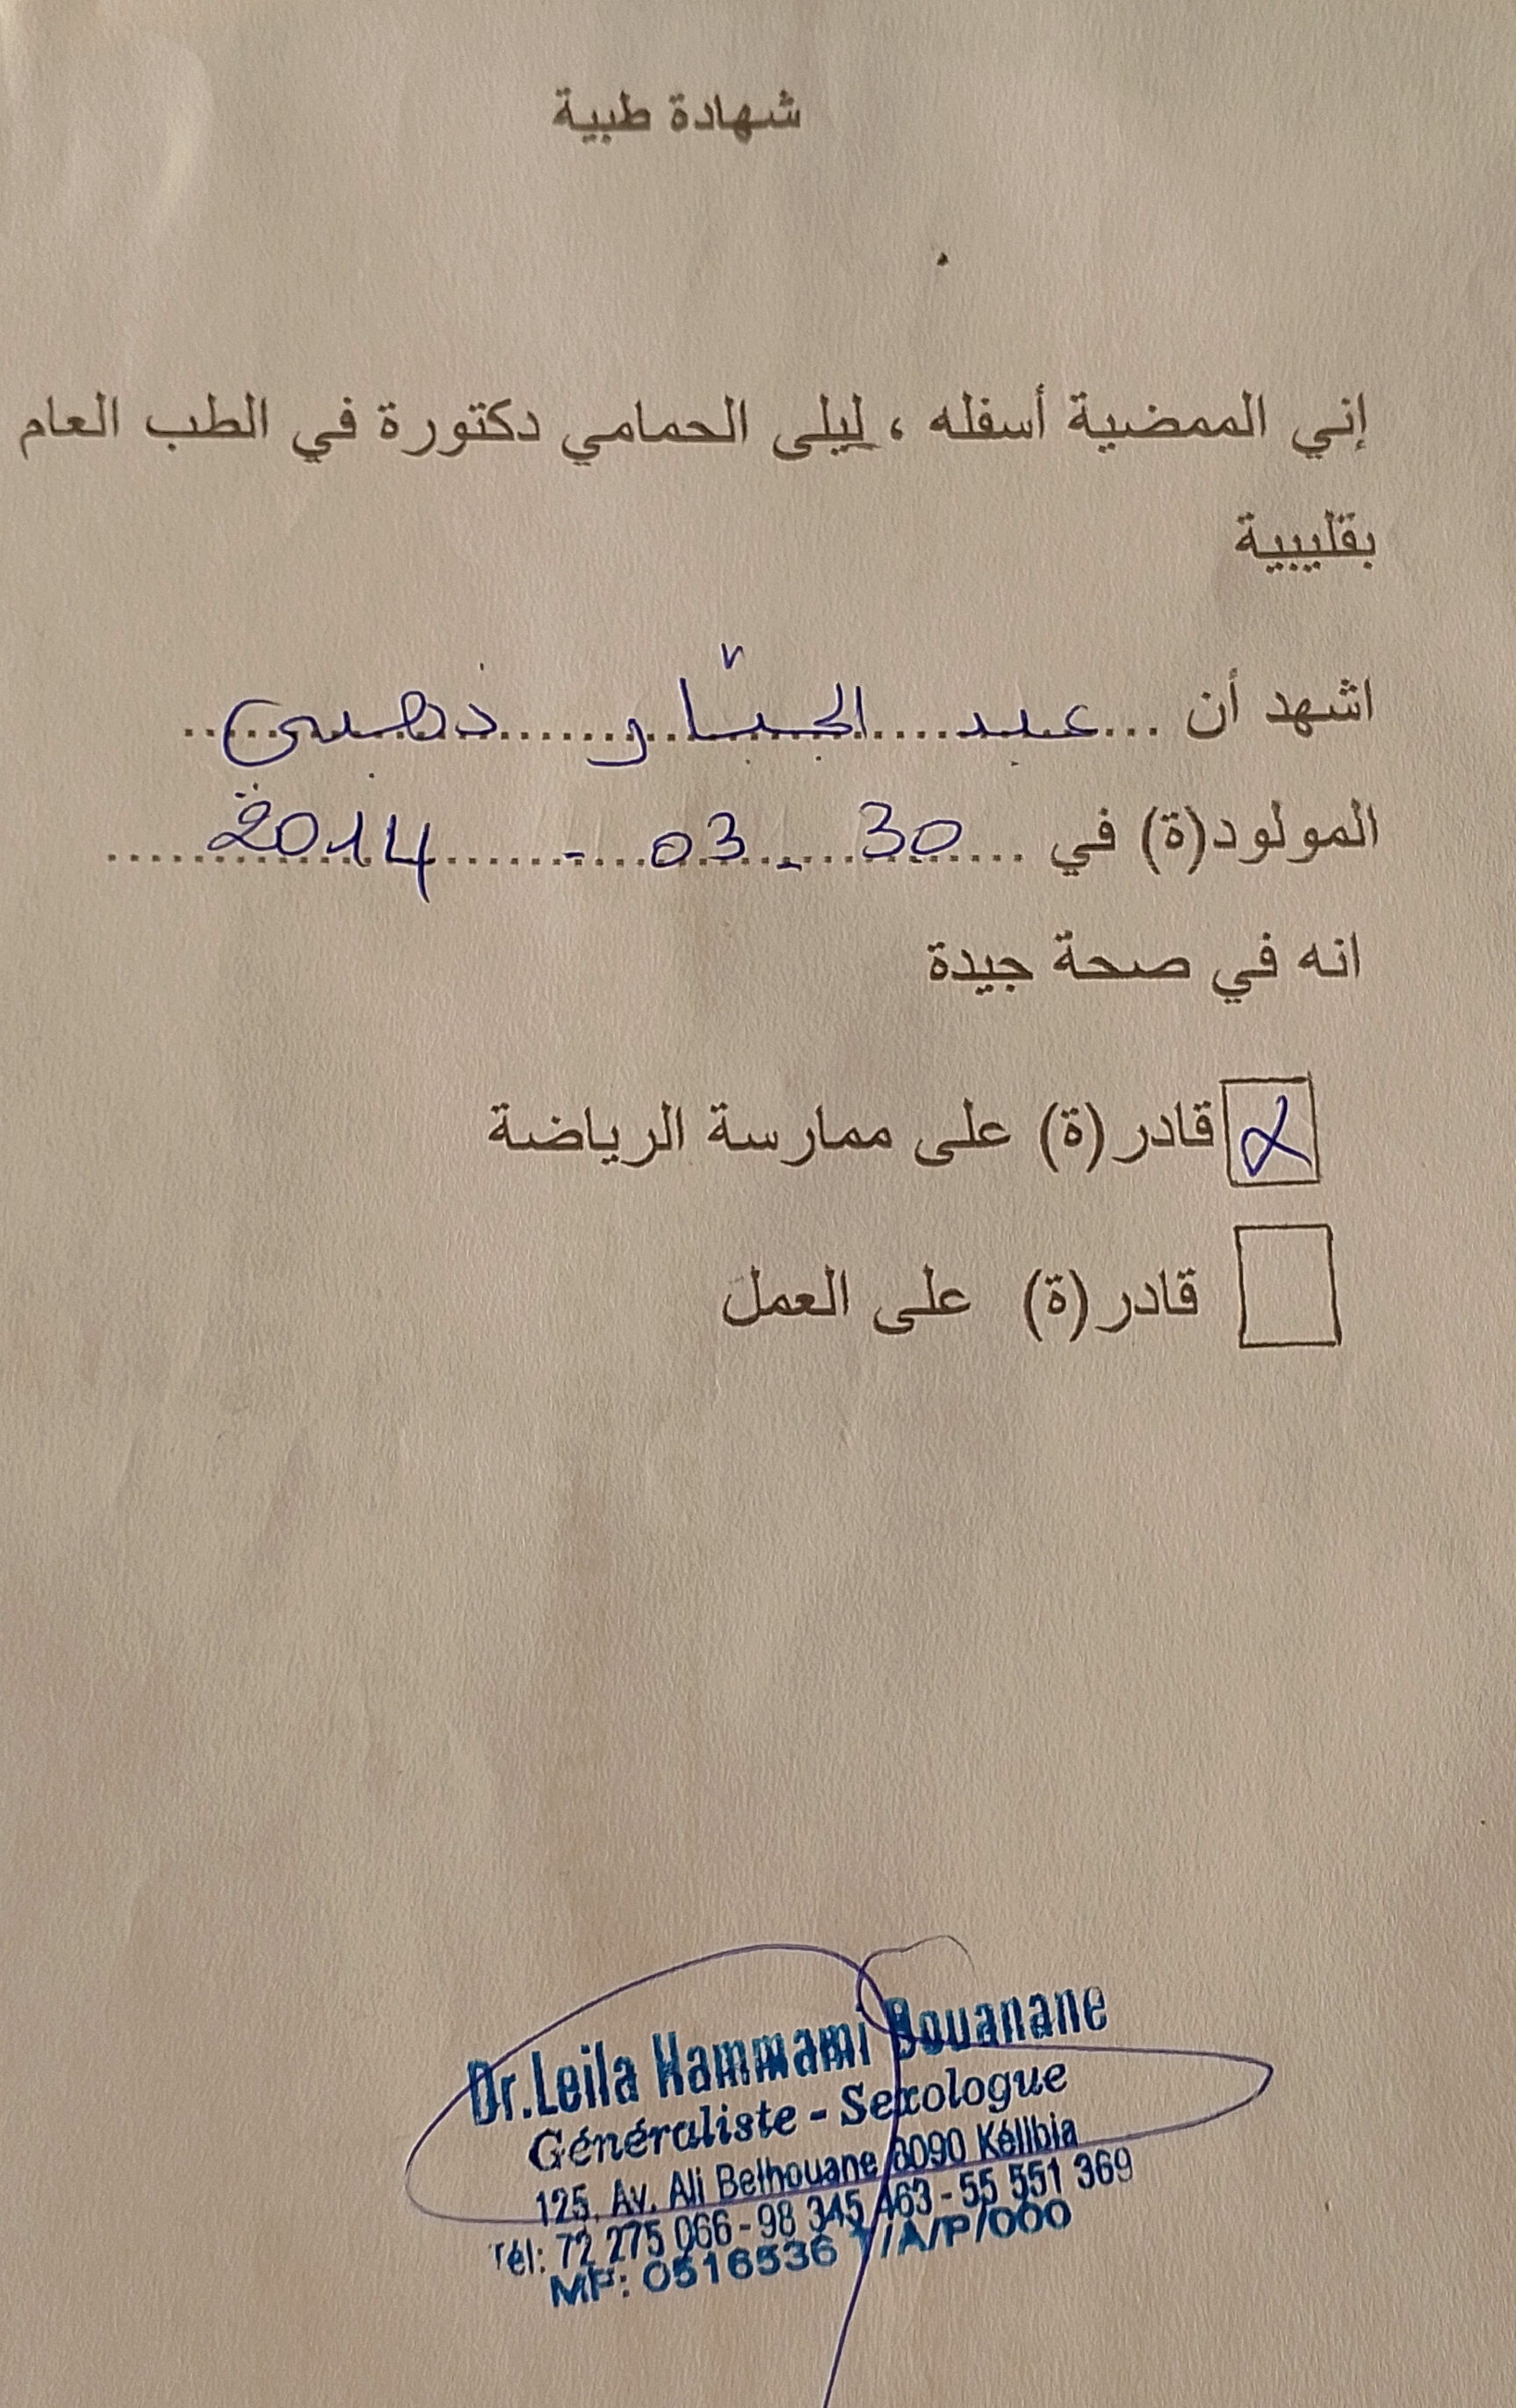 شهادة طبية
إني الممضية أسفله ، ليلى الحمامي دكتورة في الطب العام
بقليبية
اشهد أن ... عبد الجبّار ذهبي
المولود(ة) في ... 30 - 03 - 2014
انه في صحة جيدة
قادر(ة) على ممارسة الرياضة
قادر(ة) على العمل
Dr.Leila Hammami Bouanane
Généraliste - Sexologue
125, Av. Ali Belhouane 8090 Kélibia
Tél: 72 275 066 - 98 345 463 - 55 551 369
MF: 0516536 /A/P/000